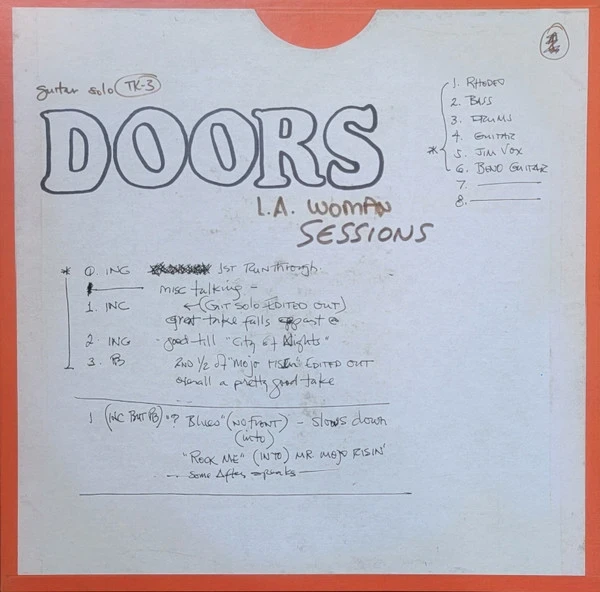 guitar solo TK-3
DOORS
L.A. WOMAN
SESSIONS
1. RHODES
2. BASS
3. DRUMS
4. GUITAR
* 5. JIM VOX
6. BEND GUITAR
7.
8.
* 0 ING 1ST RUNthrough.
misc talking -
1. INC (GIT SOLO EDITED OUT)
great take falls apart
2. ING good till "City of Nights"
3. PB 2ND 1/2 of "Mojo RISIN" EDITED OUT
overall a pretty good take
1 (INC BUT PB) "? Blues" (NO FRONT) - SLOWS down
(into)
"ROCK ME" (INTO) MR MOJO RISIN'
-- some After speaks